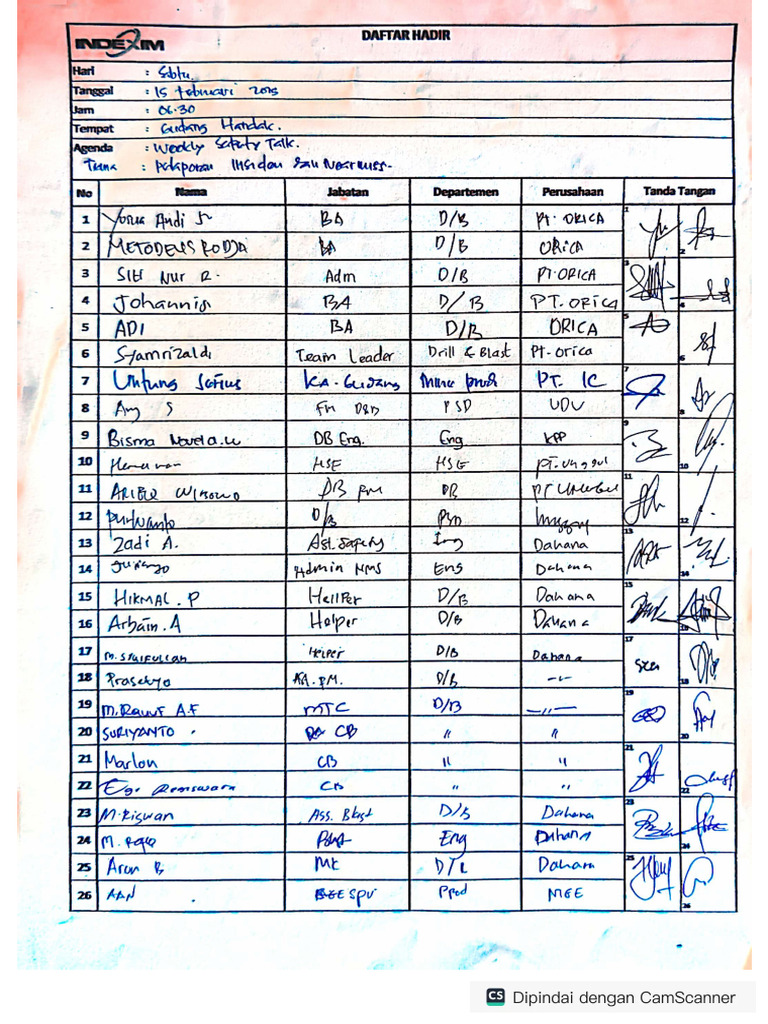 INDEXIM
DAFTAR HADIR
Hari : Sabtu
Tanggal : 15 Februari 2025
Jam : 06.30
Tempat : Gudang Handak.
Agenda : Weekly Safety Talk.
Tema : Pelaporan Insiden dan Nearmiss.
No Nama Jabatan Departemen Perusahaan Tanda Tangan
1 Andi BA D/B PT. ORICA
2 METODEUS RODJA BA D/B ORICA
3 Siti Nur R. Adm D/B PT. ORICA
4 Johannis BA D/B PT. ORICA
5 ADI BA D/B ORICA
6 Syamrizaldi Team Leader Drill & Blast Pt. Orica
7 Untung KA. Gudang PT. IC
8 Ang S PSD UDU
9 Bisma DB Eng. Eng KPP
10 HSE HSE PT. Unggul
11 DB
12 Purwanto D/B
13 Zadi A. Ast. Safety Eng Dahana
14 Admin MMS Eng Dahana
15 HIKMAL . P Hellper D/B Dahana
16 Arbain . A Helper D/B Dahana
17 M. SYAIFULLAH Helper D/B Dahana
18 Prasetyo KA. PM. D/B -"-
19 M. Rauuf A.F MTC D/B -"-
20 SURIYANTO . CB " "
21 Marlon CB " "
22 CB " "
23 M. Riswan Ass. Blast D/B Dahana
24 M. Eng Dahana
25 Arun B Dahana
26 AAN SPV Prod MGE
CS Dipindai dengan CamScanner